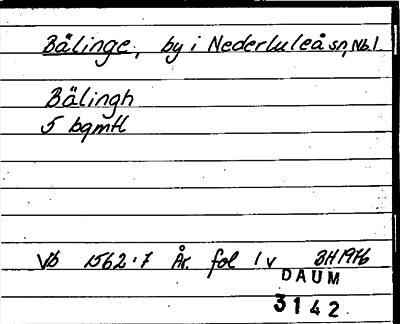 Bälinge, by i Nederluleå sn, Nb.l.
Bälingh
5 bgmtl
Vb 1562:7 År. fol 1v BH 1976
DAUM
3142.